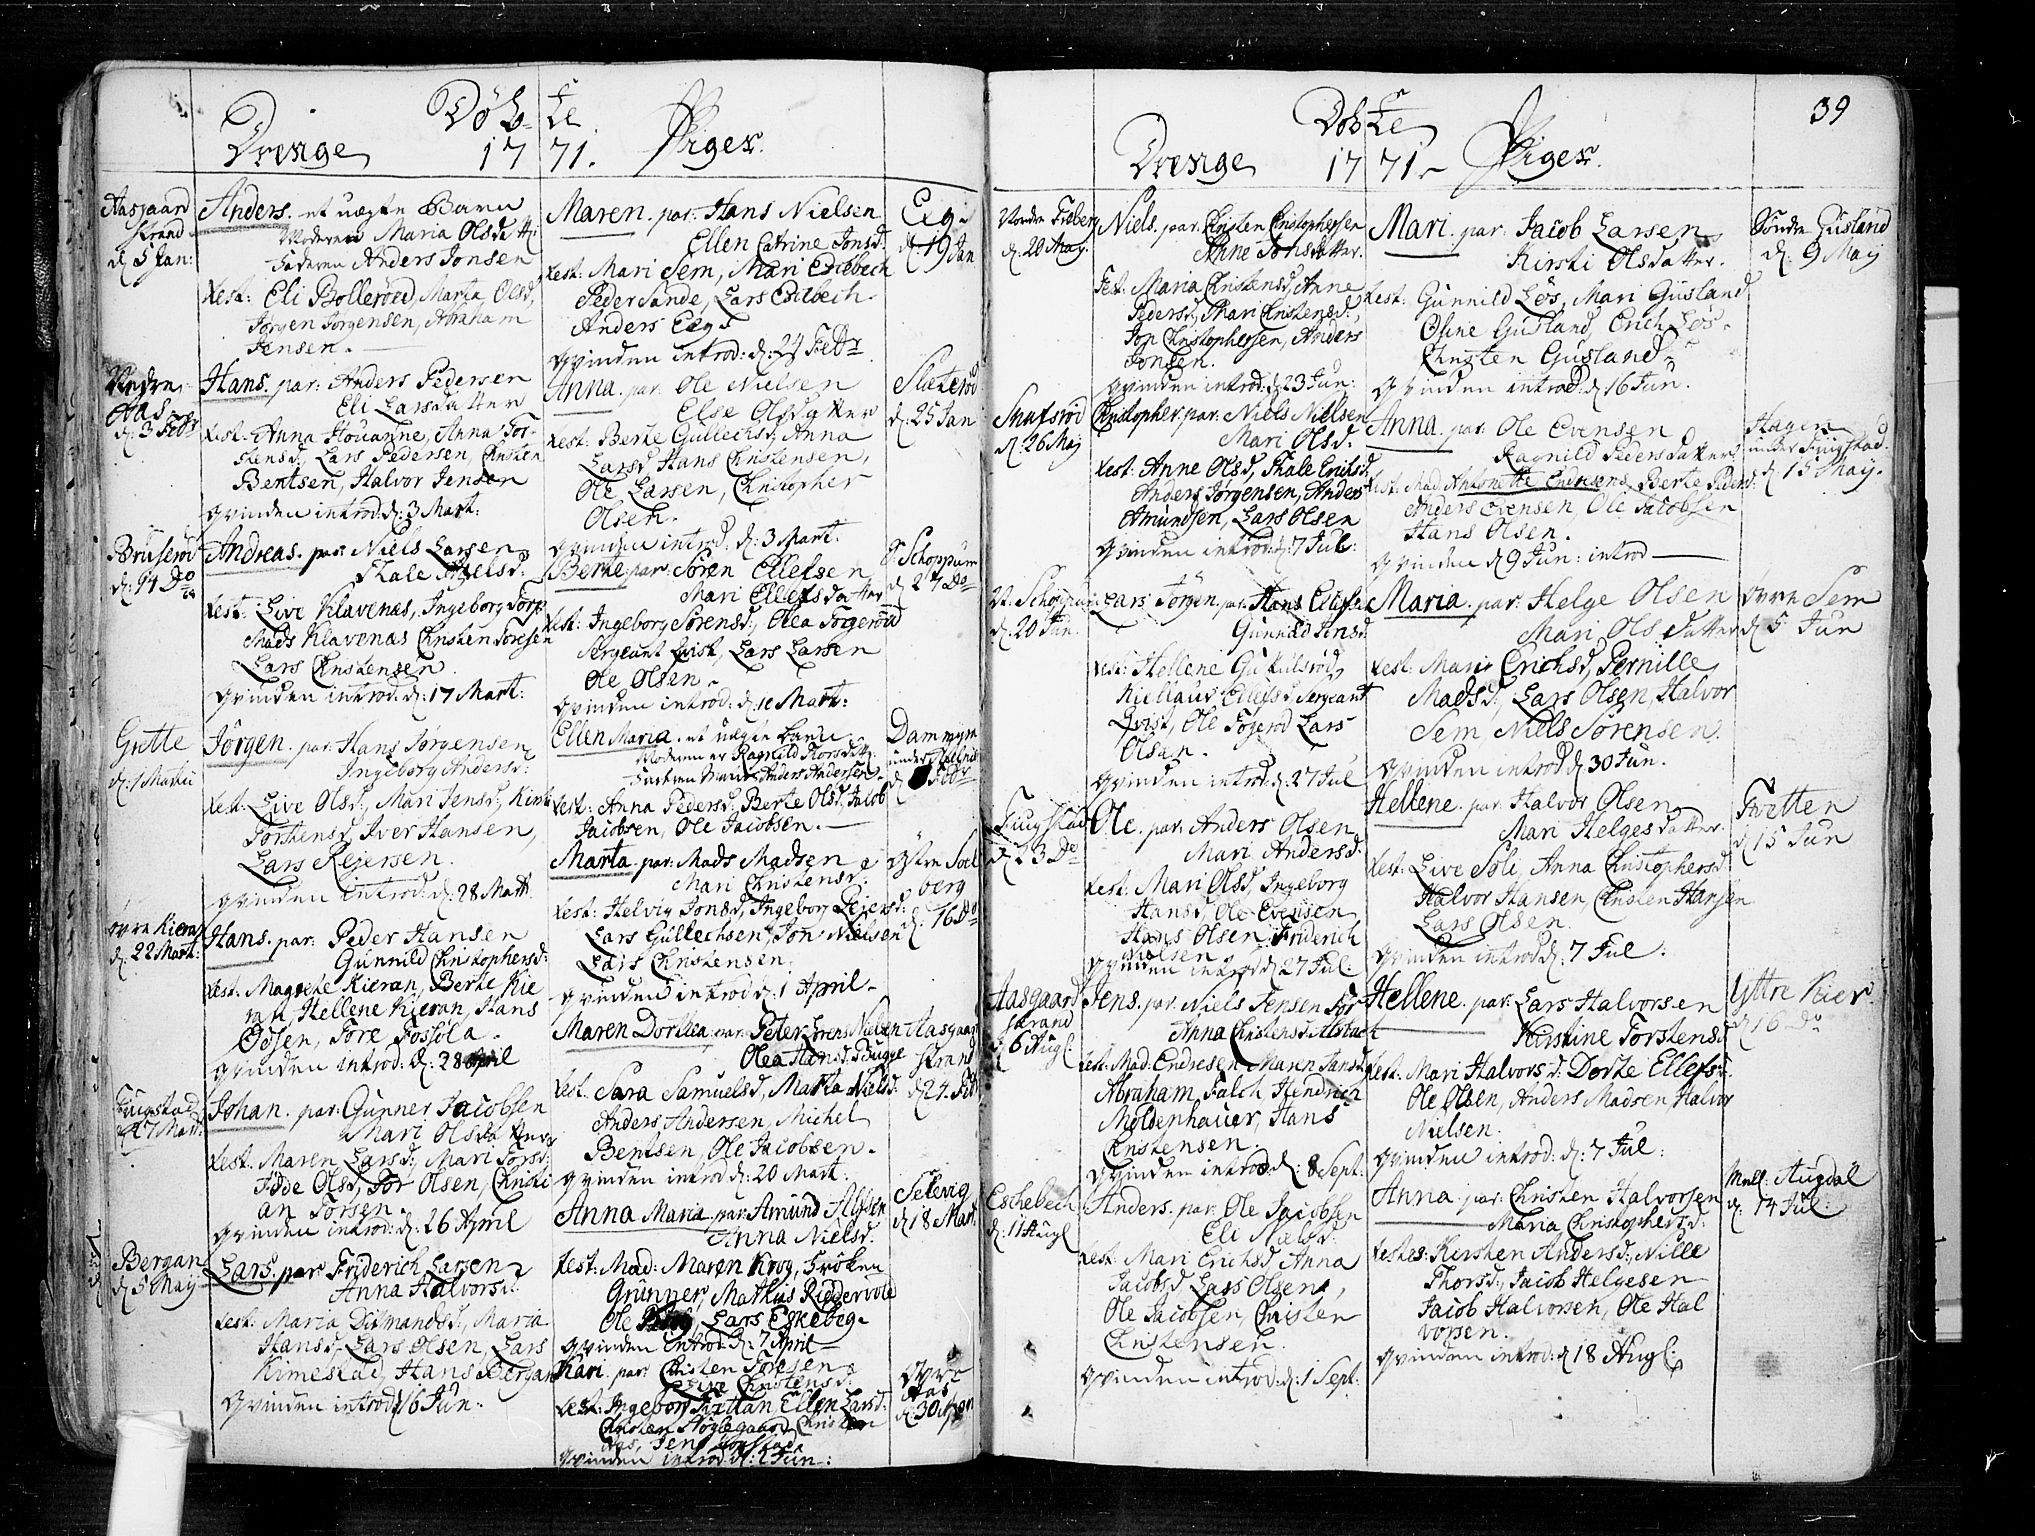 Døbte
Drenge 1771. Piger.
Aasgaard
strand
d. 5 Jan:
Anders. et uægte Barn
Moderen Maria Olsdatter
Faderen Anders Jonsen
test: Eli Bollerøed, Marta Olsd,
Jørgen Jørgensen, Abraham
Jensen.
Nedre
Aas
d: 3 Febr
Hans. par: Anders Pedersen
Eli Larsdatter
test: Anna Houanne, Anna Tor-
stensd, Lars Pedersen, Christen
Bentsen, Halvor Jensen
qvinden introd: d: 3 Mart:
Bruserød
d: 14 Do
Andreas. par: Niels Larsen
Thale
test: Live Klavenæs, Ingeborg Torp
Mads Klavenæs Christen Toresen
Lars Christensen.
qvinden introd: d: 17 Mart:
Gutte
d: 1 Martii
Jørgen. par: Hans Jørgensen
Ingeborg Andersd:
test: Live Olsd, Mari Jensd,
Torstensd, Iver Hansen,
Lars Rejersen.
qvinden introd: d: 28 Mart
øvre Kieran
d: 22 Mart:
Hans. par: Peder Hansen
Gunnild Christophersd:
test: Magrete Kieran, Berte Kie
ran Hellene Kieran, Hans
Olsen, Tore Fossøla.
qvinden introd: d: 28 April
Fuugstad
d 27 Mart:
Johan. par: Gunner Jacobsen
Mari Olsdatter
test: Maren Larsd:, Mari Torsd:
Olsd, Tor Olsen, Christi
an Torsen.
qvinden introd: d: 26 April
Bergan
d: 5 Maij
Lars. par: Friderich Larsen
Anna Halvorsd:
test: Maria Ditmandsd, Maria
Hansd, Lars Olsen, Lars
Kimestad, Hans Bergan
qvinden introd: 16 Jun:
Maren. par: Hans Nielsen
Ellen Catrine Jonsd.
test: Mari Sem, Mari Eschebech
Peder Sande, Lars Eschebech
Anders Eeg
qvinden introd: d: 24 Febr
Eeg
d: 19 Jan
Anna. par: Ole Nielsen
Else Olsdatter
test: Berte Gullechsd, Anna
Larsd Hans Christensen,
Ole Larsen, Christopher
Olsen.
qvinden introd. d: 3 Mart.
Slæterød
d: 25 Jan
Berte. par: Søren Ellefsen
Mari Ellefsdatter
test: Ingeborg Sørensd:, Olea Togerød
Sergeant Qvist, Lars Larsen
Ole Olsen.
qvinden introd: d: 10 Mart:
Schoppum
d 27 Do
Ellen Maria. et uægte barn
Moderen er Ragnild Thorsdatter
Faderen Anders Andersen.
test: Anna Pedersd: Berte Olsd, Jacob
Jacobsen, Ole Jacobsen.
Dammyen
under
d Febr
Marta. par: Mads Madsen
Mari Christensd:
test: Helvig Jonsd, Ingeborg Rejersd:
Lars Gullechsen, Jon Nielsen
Lars Christensen.
qvinden introd d: 1 April
østre Soel
berg
d: 16 Do
Maren Dorthea. par: Peter Lorens Nielsen
Olea Hansd:
test: Sara Samuelsd, Marta Nielsd:
Anders Andersen, Michel
Bentsen, Ole Jacobsen.
qvinden introd d: 20 Mart.
Aasgaard
strand
d 24 Feb
Anna Maria. par: Amund
Anna Nielsd:
test: Mad: Maren Krog, Frøken
Grunner, Mathias Riddervold
Ole Lars Eskebeg
qvinden introd d: 7 April
Selevig
d: 18 Mart
Kari. par: Christen Toresen
Live Christensd:
test: Ingeborg Ellen Larsd:
Christen Christen
Aas, Jens
qvinden introd: d: 2 Jun:
øvre
Aas
d: 30 Apr
39
Døbte
Drenge 1771 Piger.
Nordre Freberg
d: 20 Maij.
Niels. par: Christen Christophersen
Anne Jonsdatter.
Test: Maria Christensd, Anne
Pedersd, Mari Christensd.,
Jon Christophersen, Anders
Jonsen.
qvinden introd: d: 23 Jun:
Snafsrød
d: 26 Maij
Christopher. par: Niels Nielsen
Mari Olsd.
test: Anne Olsd, Thale Erichsd,
Anders Jørgensen, Anders
Amundsen, Lars Olsen
qvinden introd: d: 7 Jul:
V: Schoppum
d: 20 Jun.
Lars Jørgen. par: Hans Ellefsen
Gunnild Jensd.
test: Hellene
Ellefsd Sergeant
Qvist, Ole Togerød Lars
Olsen.
qvinden introd: d: 27 Jul
Fuugstad
d 23 Do
Ole. par: Anders Olsen
Mari Andersd.
test: Mari Olsd, Ingeborg
Hansd, Ole Evensen
Hans Olsen Friderich
Nielsen
qvinden introd: d: 27 Jul:
Aasgaard
strand
d 6 Augl:
Jens. par: Niels Jensen
Anna Christensd
test: Mad. Endresen Maren Jansd
Abraham Falch Hendrich
Moldenhauer, Hans
Christensen.
qvinden introd: d: 8 Sept:
Eschebech
d: 11 Augl
Anders. par: Ole Jacobsen
Eli Nielsd:
test: Mari Erichsd, Anna
Jacobsd, Lars Olsen,
Ole Jacobsen, Christen
Christensen.
qvinden introd: d: 1 Sept:
Mari. par: Jacob Larsen
Kirsti Olsdatter.
test: Gunnild Løs, Mari Gusland
Oline Gusland, Erich Løs.
Christen Gusland
qvinden introd: d: 16 Jun.
Søndre Gusland
d: 9 Maij
Anna. par: Ole Evensen
Ragnild Pedersdatter
test: Mad Antonette Endresens Berte Pedersd:
Anders Evensen Ole Jacobsen
Hans Olsen.
qvinden d: 9 Jun: introd
Hagen
under Fuugstad.
d 15 Maij.
Maria. par: Helge Olsen
Mari Olsdatter
test: Mari Erichsd, Pernille
Madsd:, Lars Olsen, Halvor
Sem, Niels Sørensen
qvinden introd d: 30 Jun.
øvre Sem
d 5 Jun
Hellene. par: Halvor Olsen
Mari Helgesdatter.
test: Live Soli, Anna Christophersd.
Halvor Hansen, Christen Hansen
Lars Olsen.
qvinden introd d: 7 Jul:
Tvetten
d 15 Jun
Hellene. par: Lars Halvorsen
Kirstine Torstensd
test: Mari Halvorsd: Dorte Ellefsd:
Ole Olsen, Anders Madsen Halvor
Nielsen.
qvinden introd: d: 7 Jul:
Yttre Kier
d 16 Do
Anna. par: Christen Halvorsen
Maria Christophersd:
testes: Kirsten Andersd:, Nille
Thorsd:, Jacob Helgesen
Jacob Halvorsen, Ole Hal
vorsen.
qvinden introd: d 18 Augl:
Mell: Augdal
d: 14 Jul: